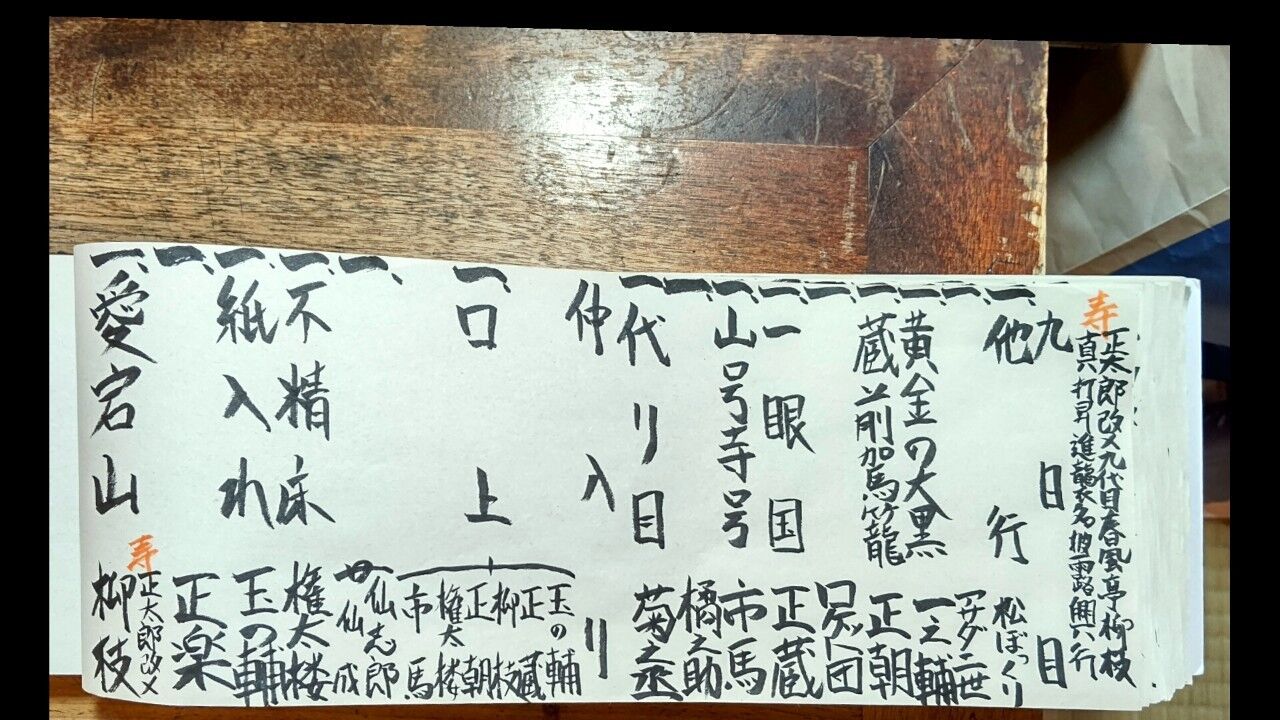 寿 正太郎改メ九代目春風亭柳枝
真打昇進襲名披露興行
九日目
一、他行 松ぼっくり
一、アサダ二世
一、黄金の大黒 一之輔
一、蔵前駕籠 正朝
一、ロケット団
一、一眼国 正蔵
一、山号寺号 市馬
一、橘之助
一、代り目 菊之丞
仲入り
一、口上
玉の輔
正蔵
柳枝
正朝
権太楼
市馬
一、仙志郎
仙成
一、不精床 権太楼
一、紙入れ 玉の輔
一、正楽
一、愛宕山 寿 正太郎改メ
柳枝